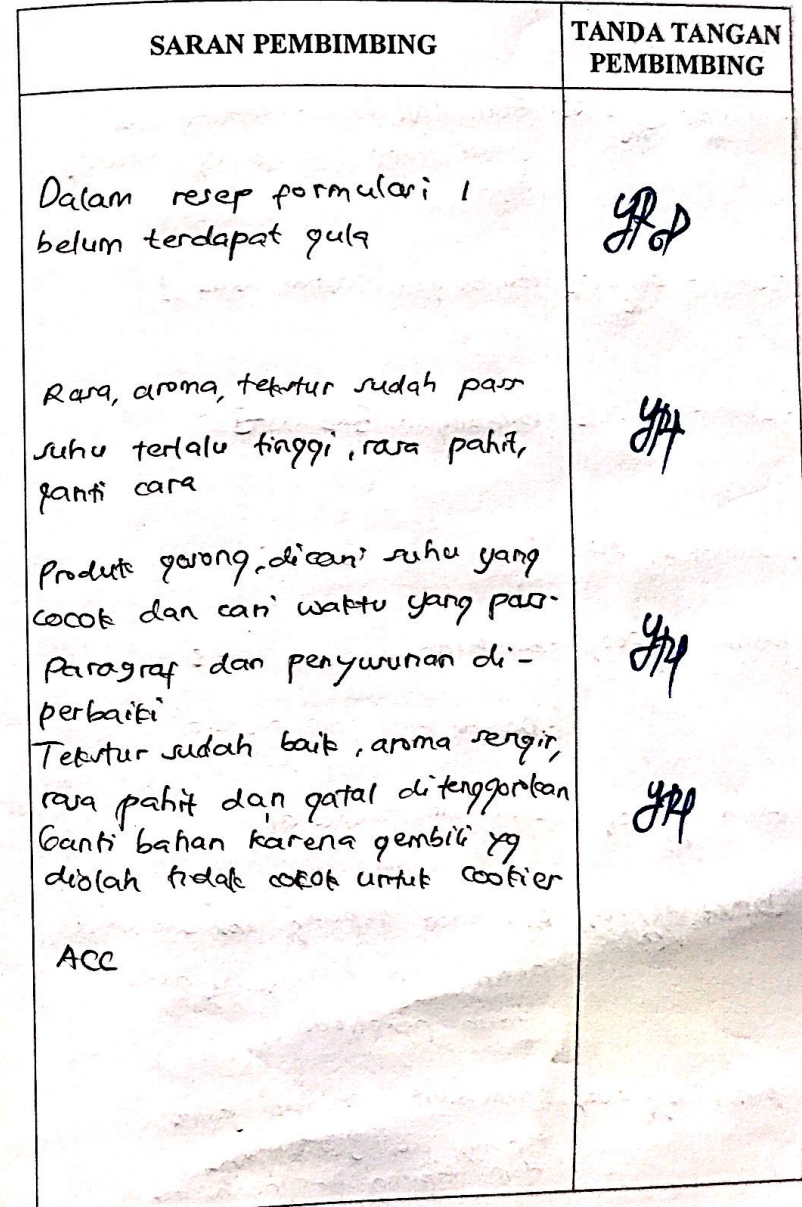 SARAN PEMBIMBING
TANDA TANGAN
PEMBIMBING
Dalam resep formulari 1
belum terdapat gula
Rasa, aroma, tekstur sudah pass
suhu terlalu tinggi, rasa pahit,
ganti cara
Produk gosong, dicari suhu yang
cocok dan cari waktu yang pass.
Paragraf dan penyusunan di-
perbaiki
Tekstur sudah baik, aroma sengir,
rasa pahit dan gatal ditenggorokan
Ganti bahan karena gembili yg
diolah tidak cocok untuk cookies
ACC